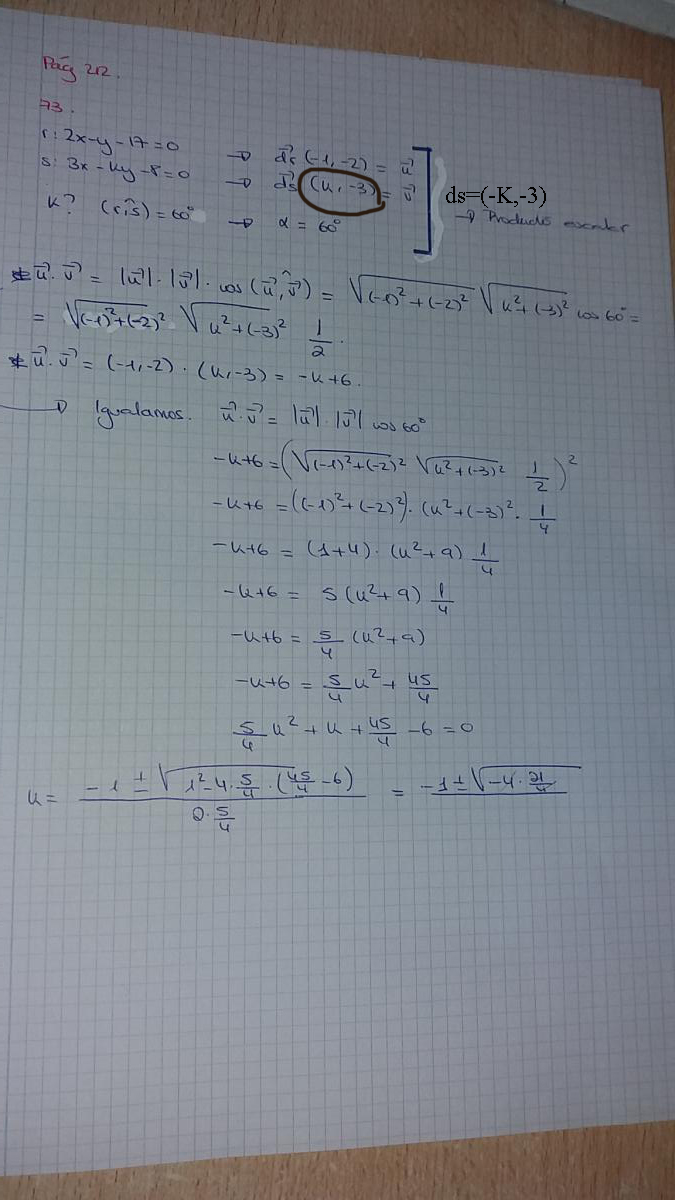 Pág 212.
73.
r: 2x-y-17=0 → d⃗r (-1,-2) = u⃗
s: 3x-ky-8=0 → d⃗s (k,-3) = v⃗ ds=(-K,-3)
k? (r,^s) = 60° → α = 60° → Producto escalar
* u⃗·v⃗ = |u⃗|·|v⃗|·cos(u⃗,^v⃗) = √((-1)²+(-2)²) √(k²+(-3)²) cos 60° =
= √((-1)²+(-2)²) · √(k²+(-3)²) 1/2.
* u⃗·v⃗ = (-1,-2)·(k,-3) = -k+6.
→ Igualamos. u⃗·v⃗ = |u⃗|·|v⃗| cos 60°
-k+6 = (√((-1)²+(-2)²) √(k²+(-3)²) 1/2)²
-k+6 = ((-1)²+(-2)²)·(k²+(-3)²· 1/4
-k+6 = (1+4)·(k²+9) 1/4
-k+6 = 5(k²+9) 1/4
-k+6 = 5/4 (k²+9)
-k+6 = 5/4 k² + 45/4
5/4 k² + k + 45/4 - 6 = 0
k = (-1 ± √(1²-4·5/4·(45/4-6))) / (2·5/4) = -1 ± √(-4·21/4)